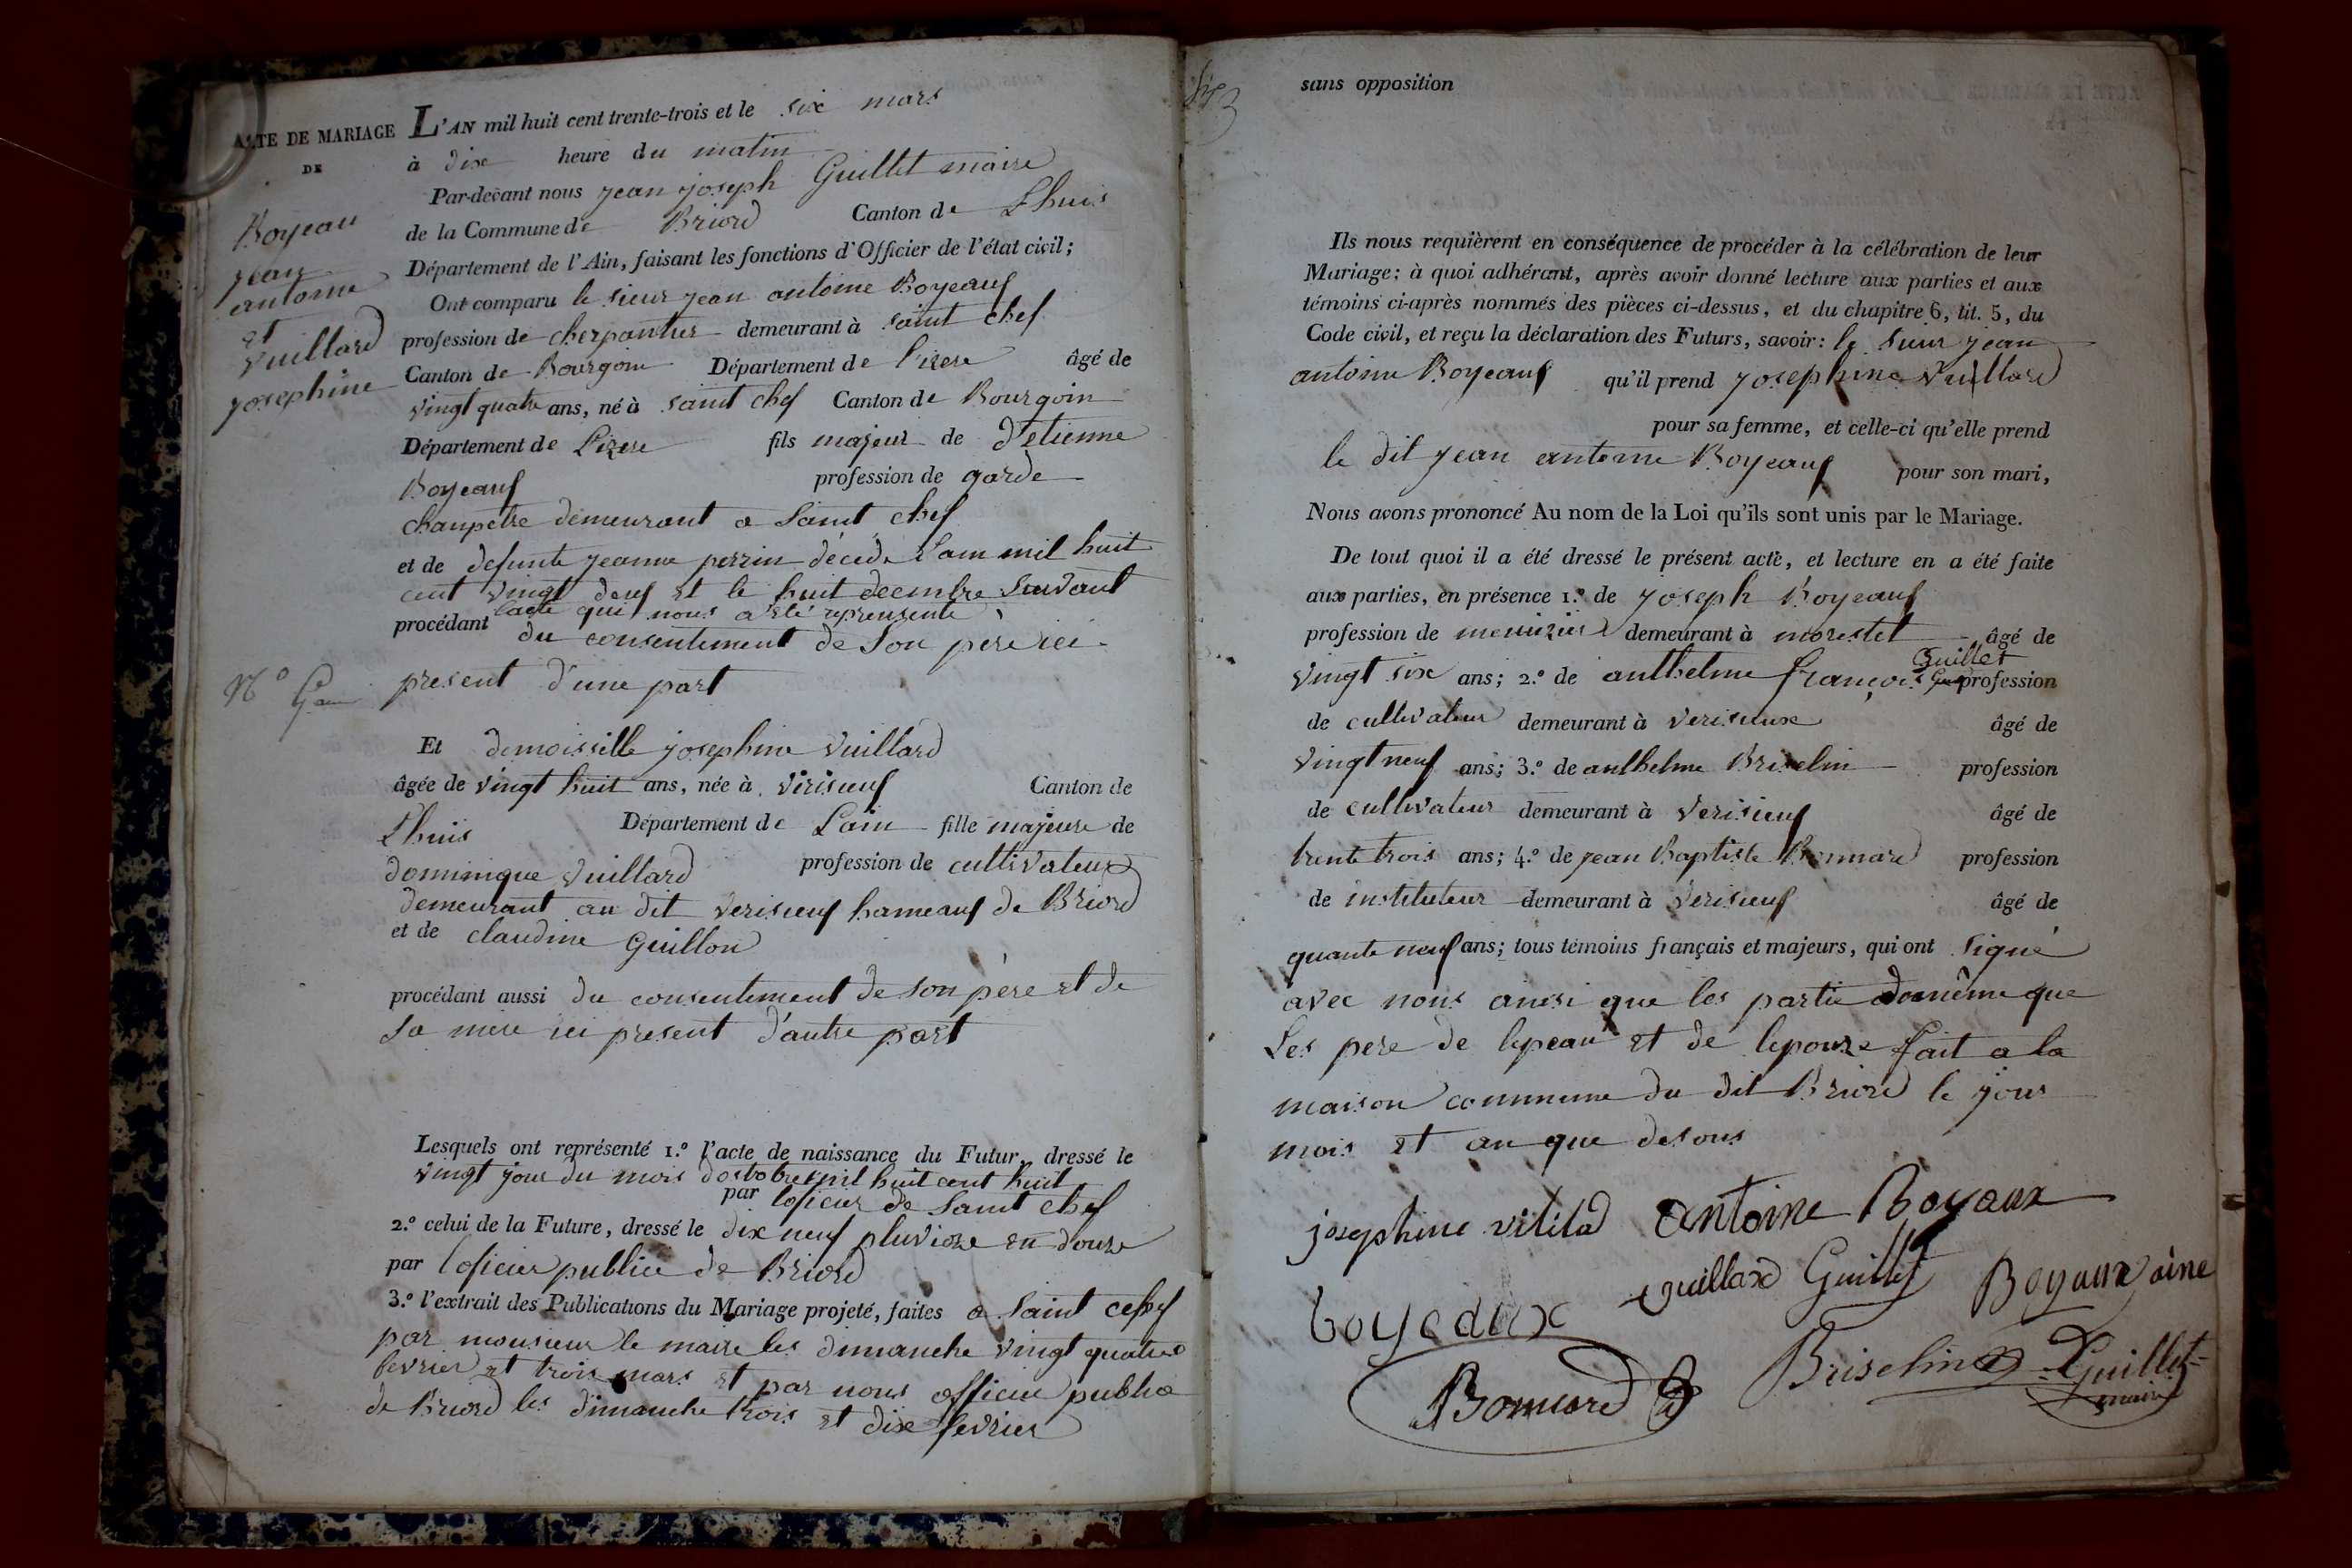 ACTE DE MARIAGE
DE
Boyeau
jean
antoine
et
Vuillard
josephine
L'AN mil huit cent trente-trois et le six mars
à dix heure du matin
Par-devant nous jean joseph Guillet maire
de la Commune de Briord Canton de Lhuis
Département de l'Ain, faisant les fonctions d'Officier de l'état civil;
Ont comparu le sieur jean antoine Boyeaux
profession de cherpantier demeurant à saint chef
Canton de Bourgoin Département de l'izere âgé de
vingt quatre ans, né à saint chef Canton de Bourgoin
Département de Lizere fils majeur de d'etienne
Boyeaux profession de garde
chanpetre demeurant a Saint chef
et de defunte jeanne perrin décédé Lam mil huit
cent vingt deux et le huit decembre Suivant
lacte qui nous a été reprensenté
procédant du consentement de Son père ici
present d'une part
Et demoisille josephine Vuillard
âgée de vingt huit ans, née à Virisieux Canton de
Lhuis Département de Lain fille majeure de
dominique Vuillard profession de cultivateur
demeurant au dit verisieux hameaux de Briord
et de claudine Guillon
procédant aussi du consentement de Son père et de
Sa mère ici present d'autre part
Lesquels ont représenté 1.º l'acte de naissance du Futur, dressé le
vingt jour du mois doctobre mil huit cent huit
par loficier de Saint chef
2.º celui de la Future, dressé le dix neuf pluviose en douze
par loficier publice de Briord
3.º l'extrait des Publications du Mariage projeté, faites a Saint cehef
par monsieur le maire les dimanche vingt quatre
fevrier et trois mars et par nous officier public
de Briord les dimanche trois et dix fevrier
sans opposition
Ils nous requièrent en conséquence de procéder à la célébration de leur
Mariage: à quoi adhérant, après avoir donné lecture aux parties et aux
témoins ci-après nommés des pièces ci-dessus, et du chapitre 6, tit. 5, du
Code civil, et reçu la déclaration des Futurs, savoir: le Sieur jean
antoine Boyeaux qu'il prend josephine Vuillard
pour sa femme, et celle-ci qu'elle prend
le dit jean antoine Boyeaux pour son mari,
Nous avons prononcé Au nom de la Loi qu'ils sont unis par le Mariage.
De tout quoi il a été dressé le présent acte, et lecture en a été faite
aux parties, en présence 1.º de joseph Boyeaux
profession de menuizier demeurant à morestel âgé de
Guillet
vingt six ans; 2.º de anthelme françois profession
de cultivateur demeurant à verisieux âgé de
vingt neuf ans; 3.º de anthelme Briselin profession
de cultivateur demeurant à Verisieux âgé de
trente trois ans; 4.º de jean Baptiste Bonnard profession
de instituteur demeurant à Verisieux âgé de
quante neuf ans; tous témoins français et majeurs, qui ont Signé
avec nous ainsi que les partie domême que
Les pere de lepeaux et de lepouze fait a la
maison commune du dit Briord le jour
mois et an que desous
josephine vililad antoine Boyaux
vguillard Guillet Boyaux aine
boyeaux
Bonnard Briselin Guillet
maire